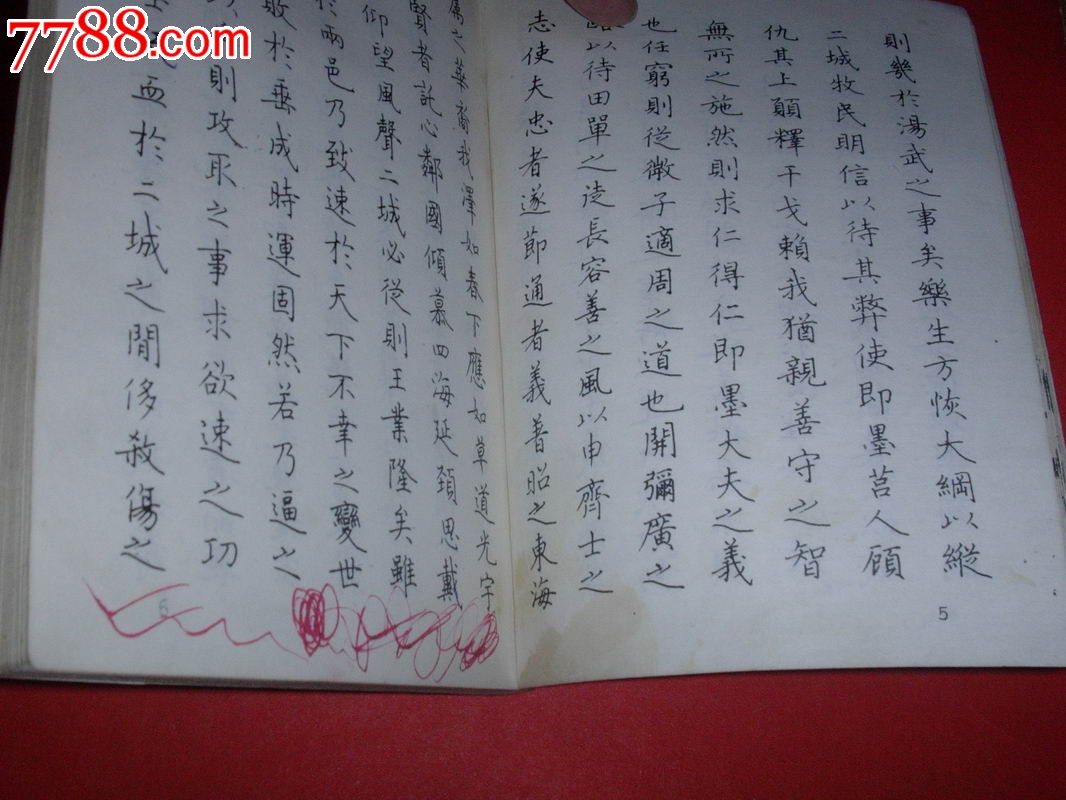 7788.com
则幾於湯武之事矣樂生方恢大綱以縱
二城牧民明信以待其弊使即墨莒人顧
仇其上願釋干戈賴我猶親善守之智
無所之施然則求仁得仁即墨大夫之義
也任窮則從微子適周之道也開彌廣之
路以待田單之徒長容善之風以申齊士之
志使夫忠者遂節通者義著昭之東海
屬之華裔我澤如春下應如草道光宇
賢者託心鄰國傾慕四海延頸思戴
仰望風聲二城必從則王業隆矣雖
於兩邑乃致速於天下不幸之變世
敗於垂成時運固然若乃逼之
則攻取之事求欲速之功
於二城之間侈殺傷之
5
6